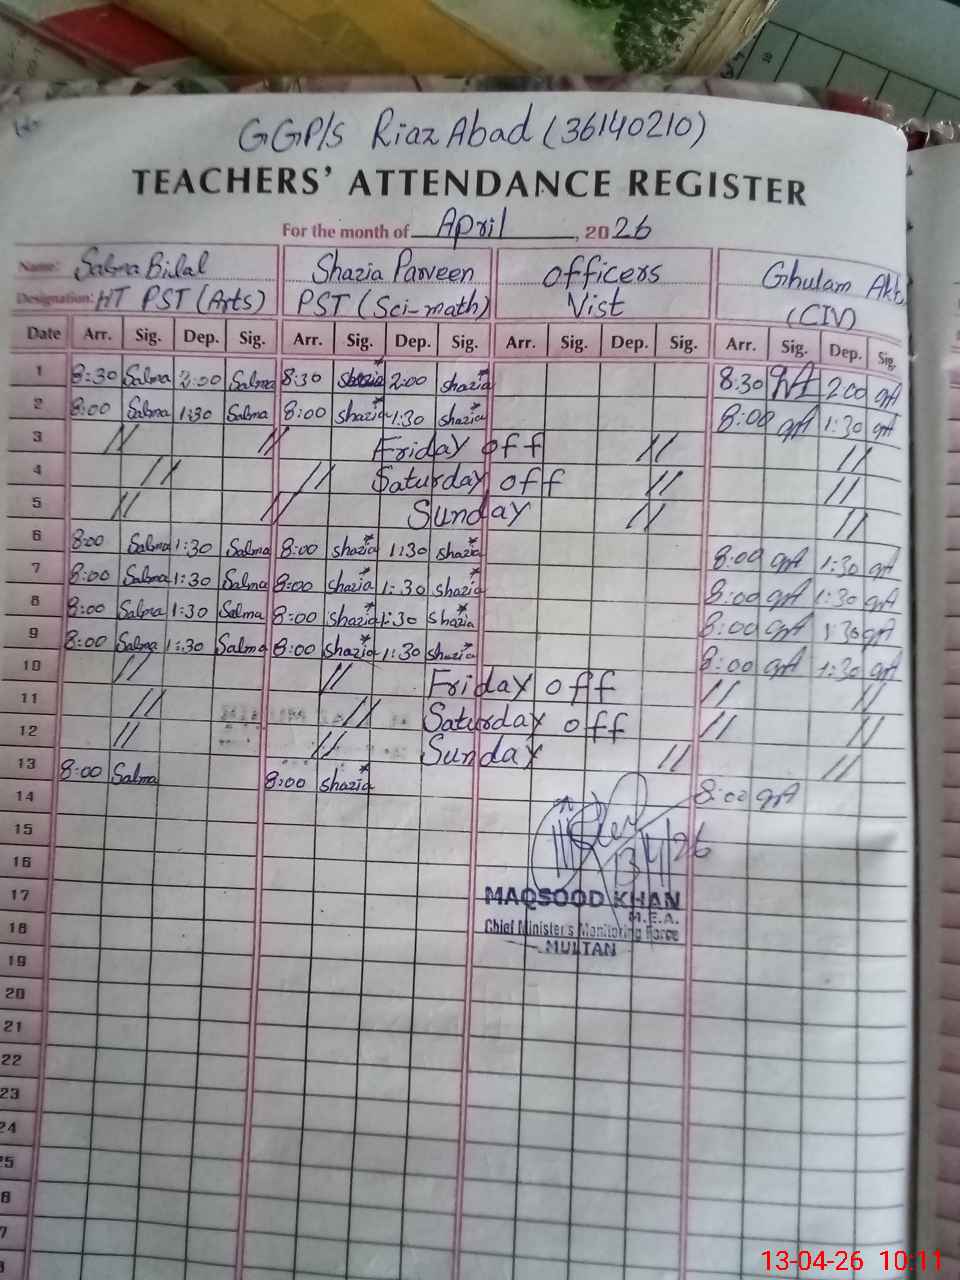 GGP/S Riaz Abad (36140210)
TEACHERS' ATTENDANCE REGISTER
For the month of April, 2026
Name: Salma Bilal Shazia Parveen officers Ghulam Akt
Designation: HT PST (Arts) PST (Sci-math) Vist (CIV)
Date Arr. Sig. Dep. Sig. Arr. Sig. Dep. Sig. Arr. Sig. Dep. Sig. Arr. Sig. Dep. Sig.
1 8:30 Salma 2:00 Salma 8:30 Shazia 2:00 shazia 8:30 GA 2:00 GA
2 8:00 Salma 1:30 Salma 8:00 shazia 1:30 shazia 8:00 GA 1:30 GA
3 // // Friday off // //
4 // // Saturday off // //
5 // // Sunday // //
6 8:00 Salma 1:30 Salma 8:00 shazia 1:30 shazia 8:00 GA 1:30 GA
7 8:00 Salma 1:30 Salma 8:00 shazia 1:30 shazia 8:00 GA 1:30 GA
8 8:00 Salma 1:30 Salma 8:00 shazia 1:30 shazia 8:00 GA 1:30 GA
9 8:00 Salma 1:30 Salma 8:00 shazia 1:30 shazia 8:00 GA 1:30 GA
10 // // Friday off // //
11 // // Saturday off // //
12 // // Sunday // //
13 8:00 Salma 8:00 shazia 8:00 GA
14
15
13/4/26
16
17
MAQSOOD KHAN
M.E.A.
18
Chief Minister's Monitoring Force
MULTAN
19
20
21
22
23
24
25
6
7
8
13-04-26 10:11